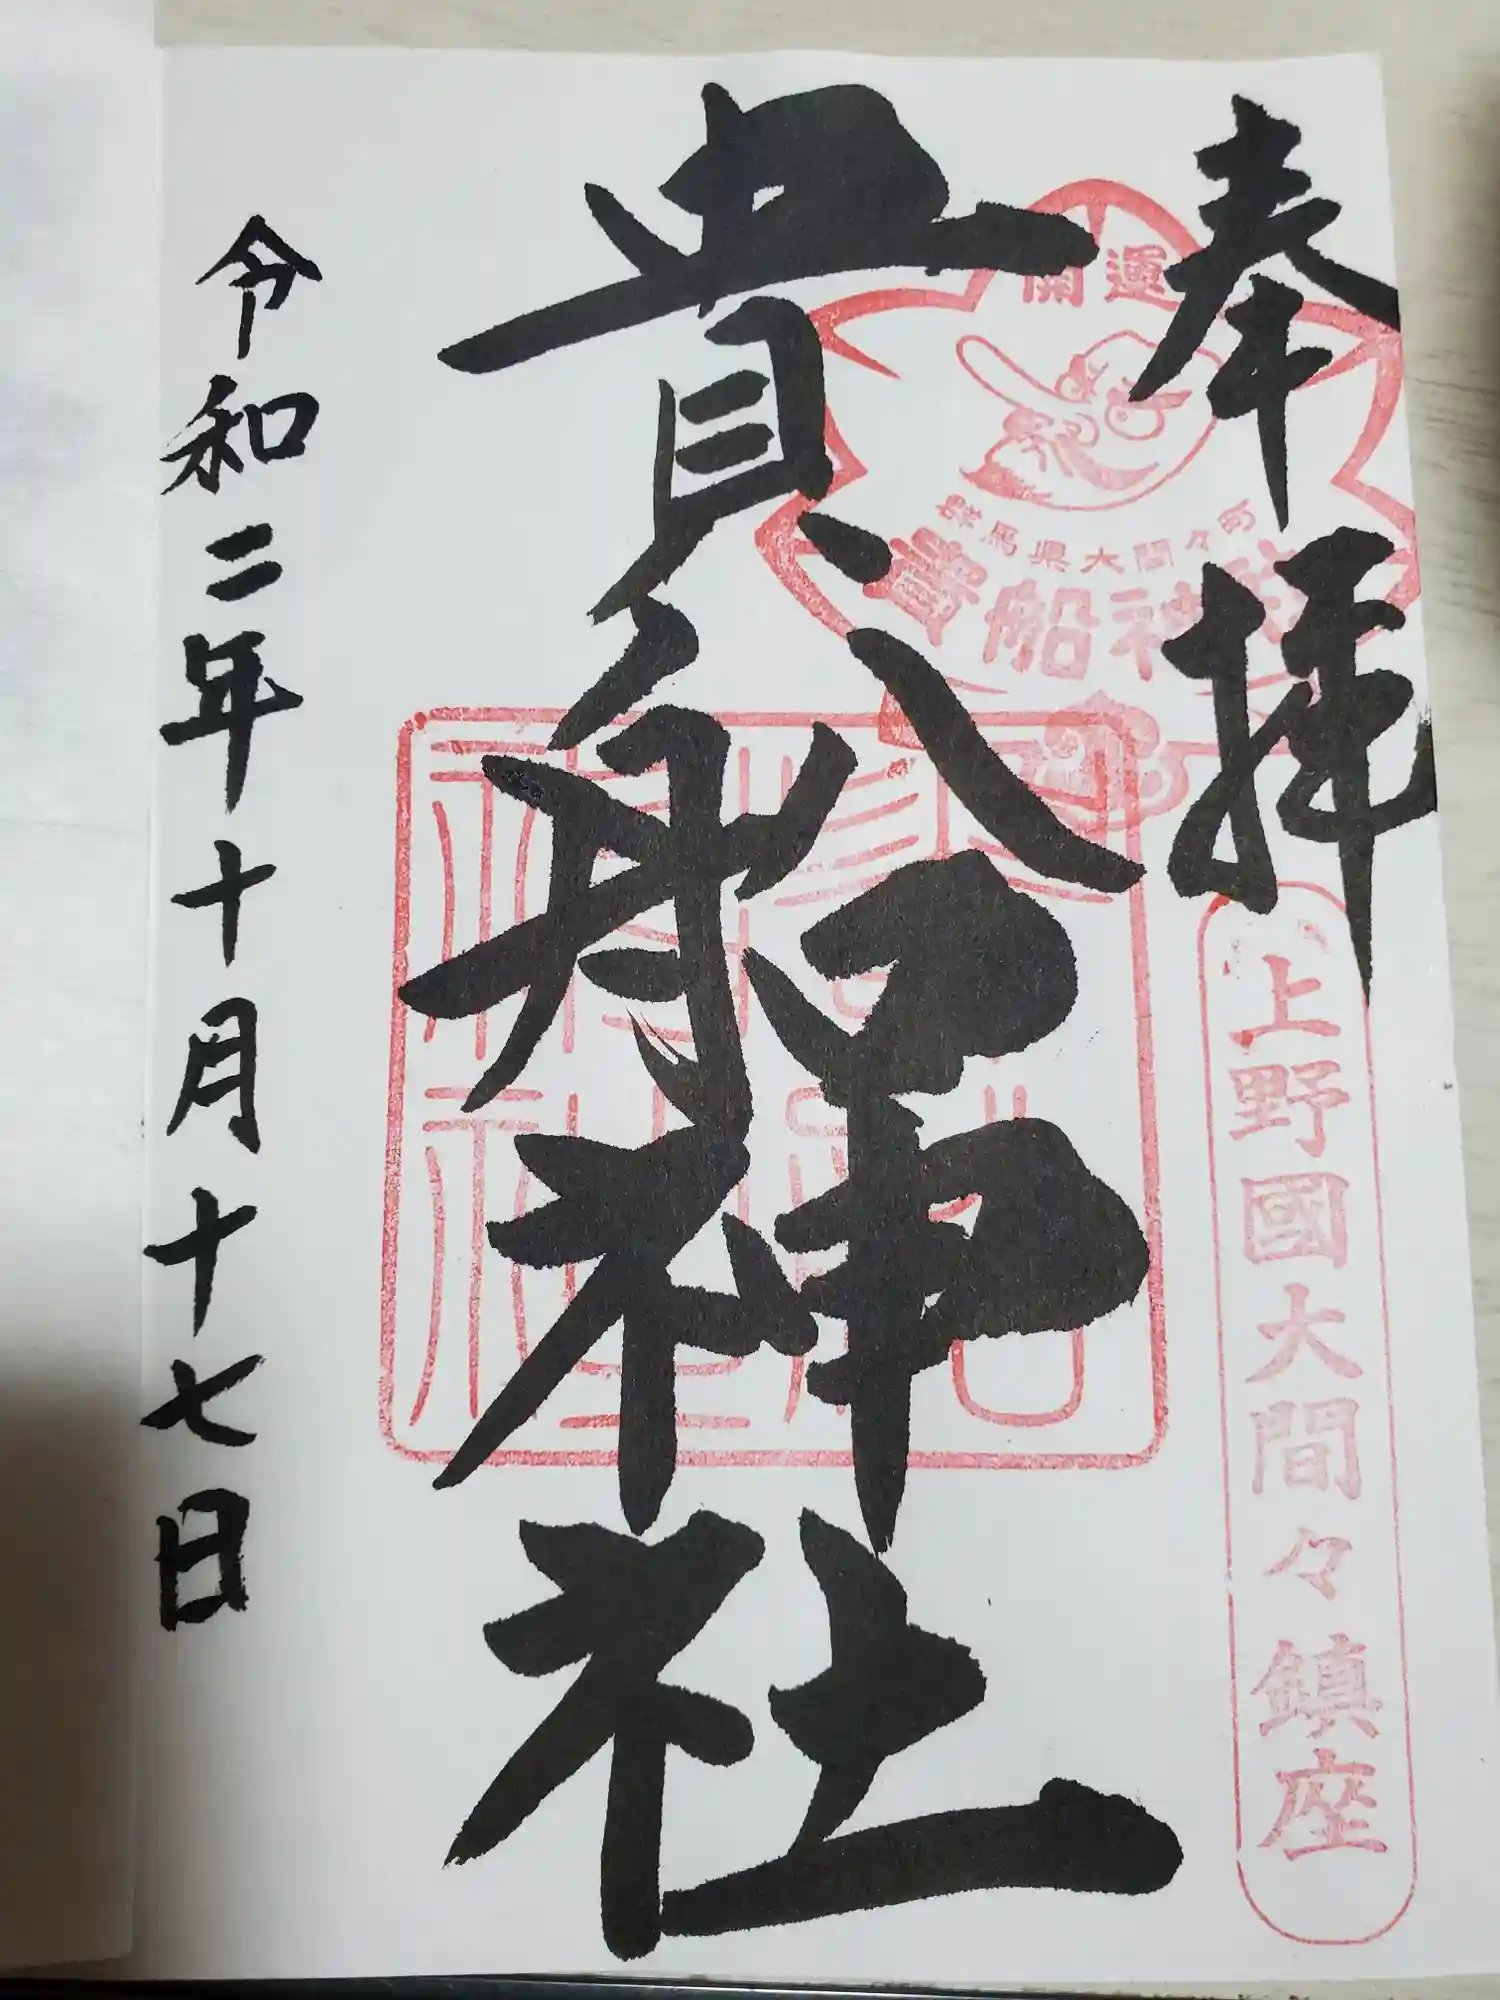 奉拝
開運
群馬県大間々町
貴船神社
上野國大間々鎮座
貴船神社
令和二年十月十七日